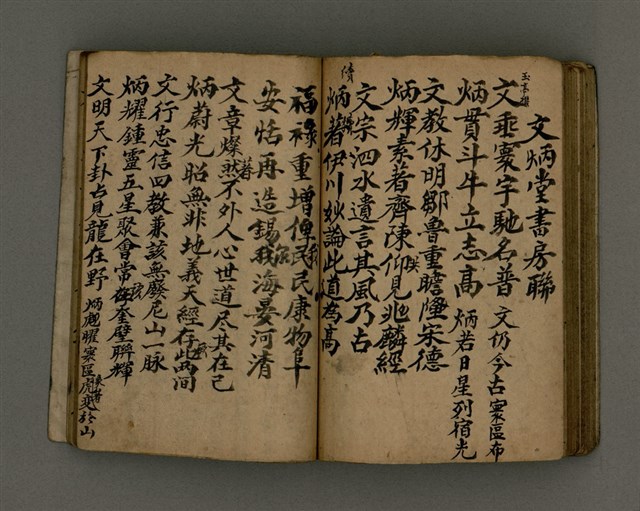 文炳堂書房聯
文垂寰宇馳名普
炳貫斗牛立志高
文仍今古寰區布
炳若日星列宿光
文教休明鄒魯重瞻隆宋德
炳輝素著齊陳仰見兆麟經
文宗泗水遺言其風乃古
炳著伊川妙論此道為高
福祿重增俚民民康物阜
安恬再造錫我海晏河清
文章燦然不外人心世道尽其在己
炳蔚光昭無非地義天經存此两間
文行忠信四教兼該無廢尼山一脉
炳耀鍾靈五星聚會常在奎壁聯輝
文明天下卦占見龍在野
炳耀寰區虎変於山